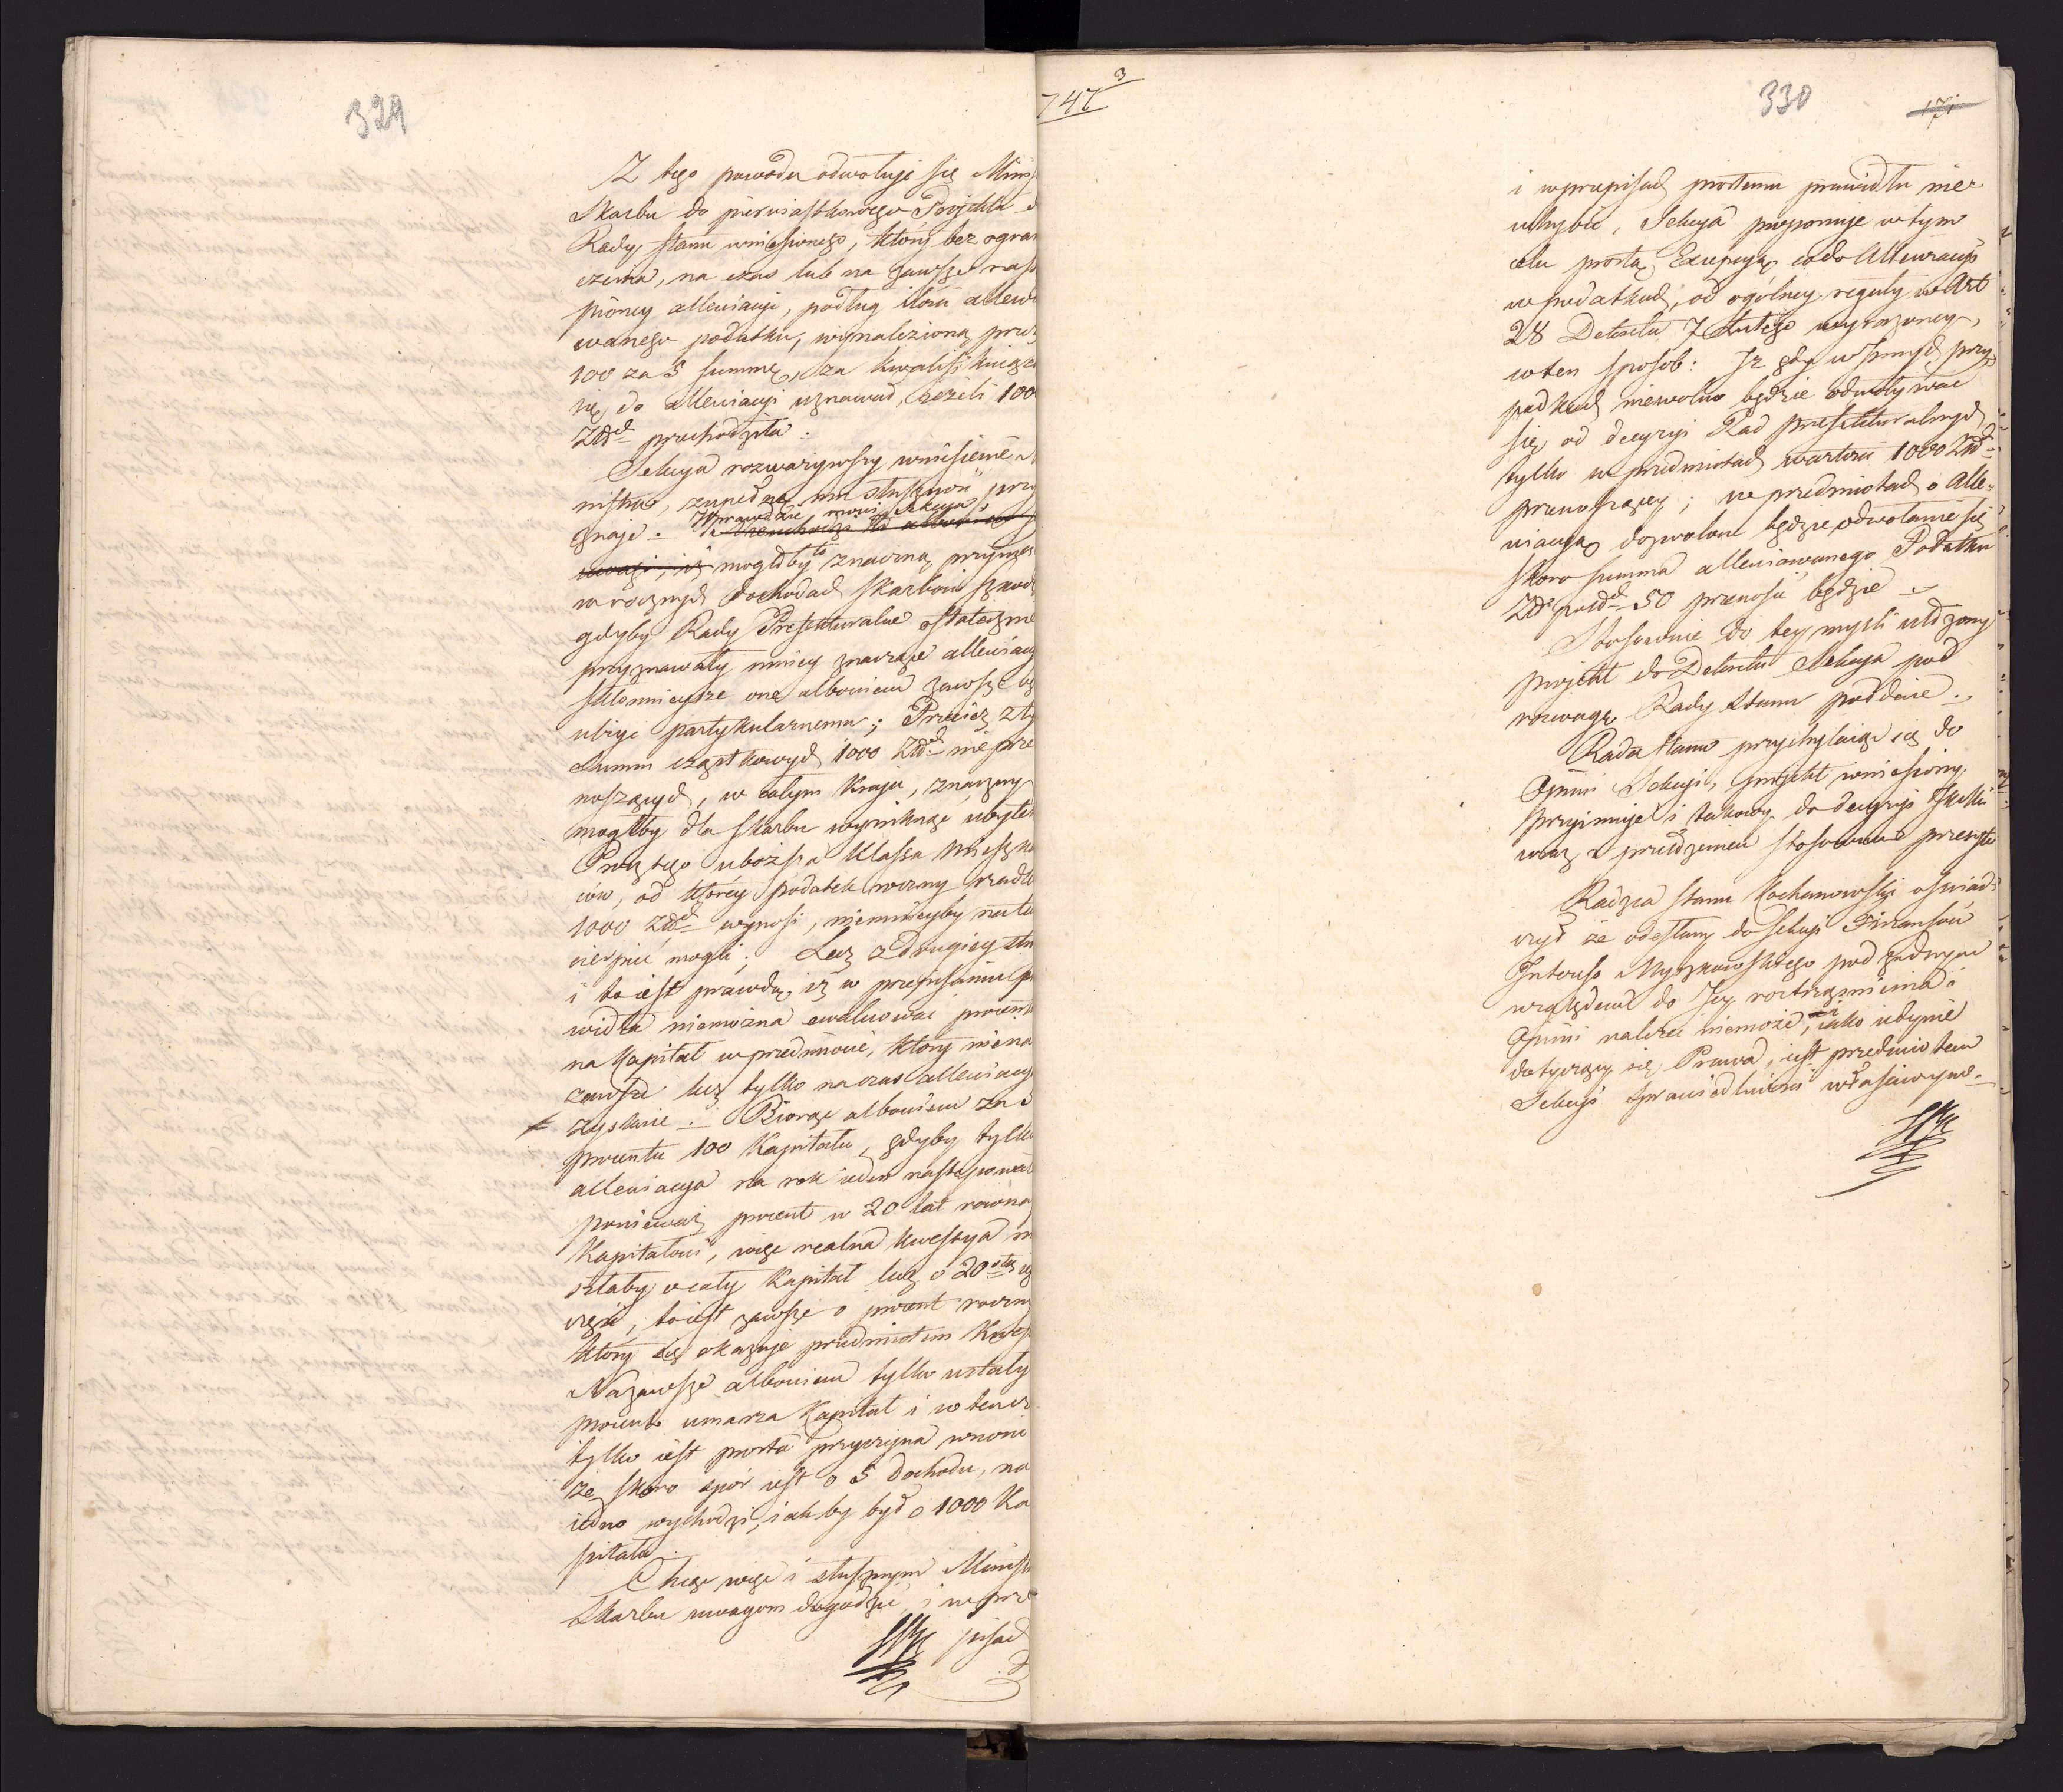 329
Z tego powodu odwołuje się Mini
Skarbu do pierwiastkowego Projektu d
Rady Stanu wniesionego, który bez ogra
czenia, na czas lub na zawsze nast
pioney alleviacyi, podług ilości allevi
owanego podatku, wynalezioną prze
100 za 5 summę, za kwalifikuiącą
się do alleviacyi uznawał, jeżeli 1000
Złłch przechodziła.
Sekcya rozważywszy wniesienie M
nistra, zupełną mu słuszność przy
znaje. Wprawdzie, mówi Sekcya
mogłoby to znaczną przynieść
w rocznych dochodach Skarbowi szkod
gdyby Rady Prefekturalne ostatecznie
przyznawały mniey znaczące alleviacy
skłonnieysze one albowiem zawsze
ulżyć partykularnemu; Przecież z ty
Summ cząstkowych 1000 Złłch nie prze
noszących, w całym Kraju, znaczny
mógłby dla Skarbu wyniknąć ubytek
Prócz tego uboższa Klassa Mieszka
ców, od którey podatek roczny rzadko
1000 Złłch wynosi, niemnieyby na tem
cierpieć mogli; Lecz z drugiey stro
i to iest prawdą, iż w przepisaniu pra
widła niemożna ewaluować procentu
na Kapitał w przedmiocie, który nie na
zawsze lecz tylko na czas alleviacyę
zyskuie. Biorąc albowiem za 5
procentu 100 Kapitału, gdyby tylko
alleviacya na rok ieden następowała
ponieważ procent w 20 lat równa
Kapitałowi, więc realna kwestya nie
szłaby o cały Kapitał lecz o 20stą ie
część, to iest zawsze o procent roczny
który się okazuje przedmiotem Kwest
Na zawsze albowiem tylko ustały
procent umarza Kapitał i wtencz
tylko iest prosta przyczyna wnosić
że skoro spór iest o 5 dochodu, na
iedno wychodzi, iak by był o 1000 Ka
pitału.
Chcąc więc i słusznym Ministra
Skarbu uwagom dogodzić, i w prze
pisach
747 3
330
171
i w przepisach prostemu prawidłu nie
uchybić, Sekcya proponuje w tym
celu prostą Excepcyą co do Alleviacyi
w podatkach, od ogólney reguły w Art
28 Dekretu 7 Lutego wyrażoney,
w ten sposób: Iż gdy w innych przy
padkach niewolno będzie odwoływać
się od decyzyi Rad Prefekturalnych
tylko w przedmiotach wartości 1000 Złłch
przenoszącey; w przedmiotach o Alle-
viacyą dozwolone będzie odwołanie się
skoro summa alleviowanego Podatku
Złł. 50 przenosić będzie.
Stosownie do tey myśli ułożony
projekt do Dekretu Sekcya pod
rozwagę Rady Stanu poddaie.
Rada Stanu przychylaiąc się do
Opinii Sekcyi, projekt wniesiony,
przyimuje i takowy do decyzyi JKMci
wraz z przełożeniem stosownie przesyła
Radzca Stanu Kochanowski oświad-
czył że odesłany do Sekcyi Finansów
Interess Myszkowskiego pod żadnym
względem do Jey roztrząśnienia i
Opinii należeć niemoże, iako iedynie
dotyczący się Prawa, iest przedmiotem
Sekcyi Sprawiedliwości właściwym.